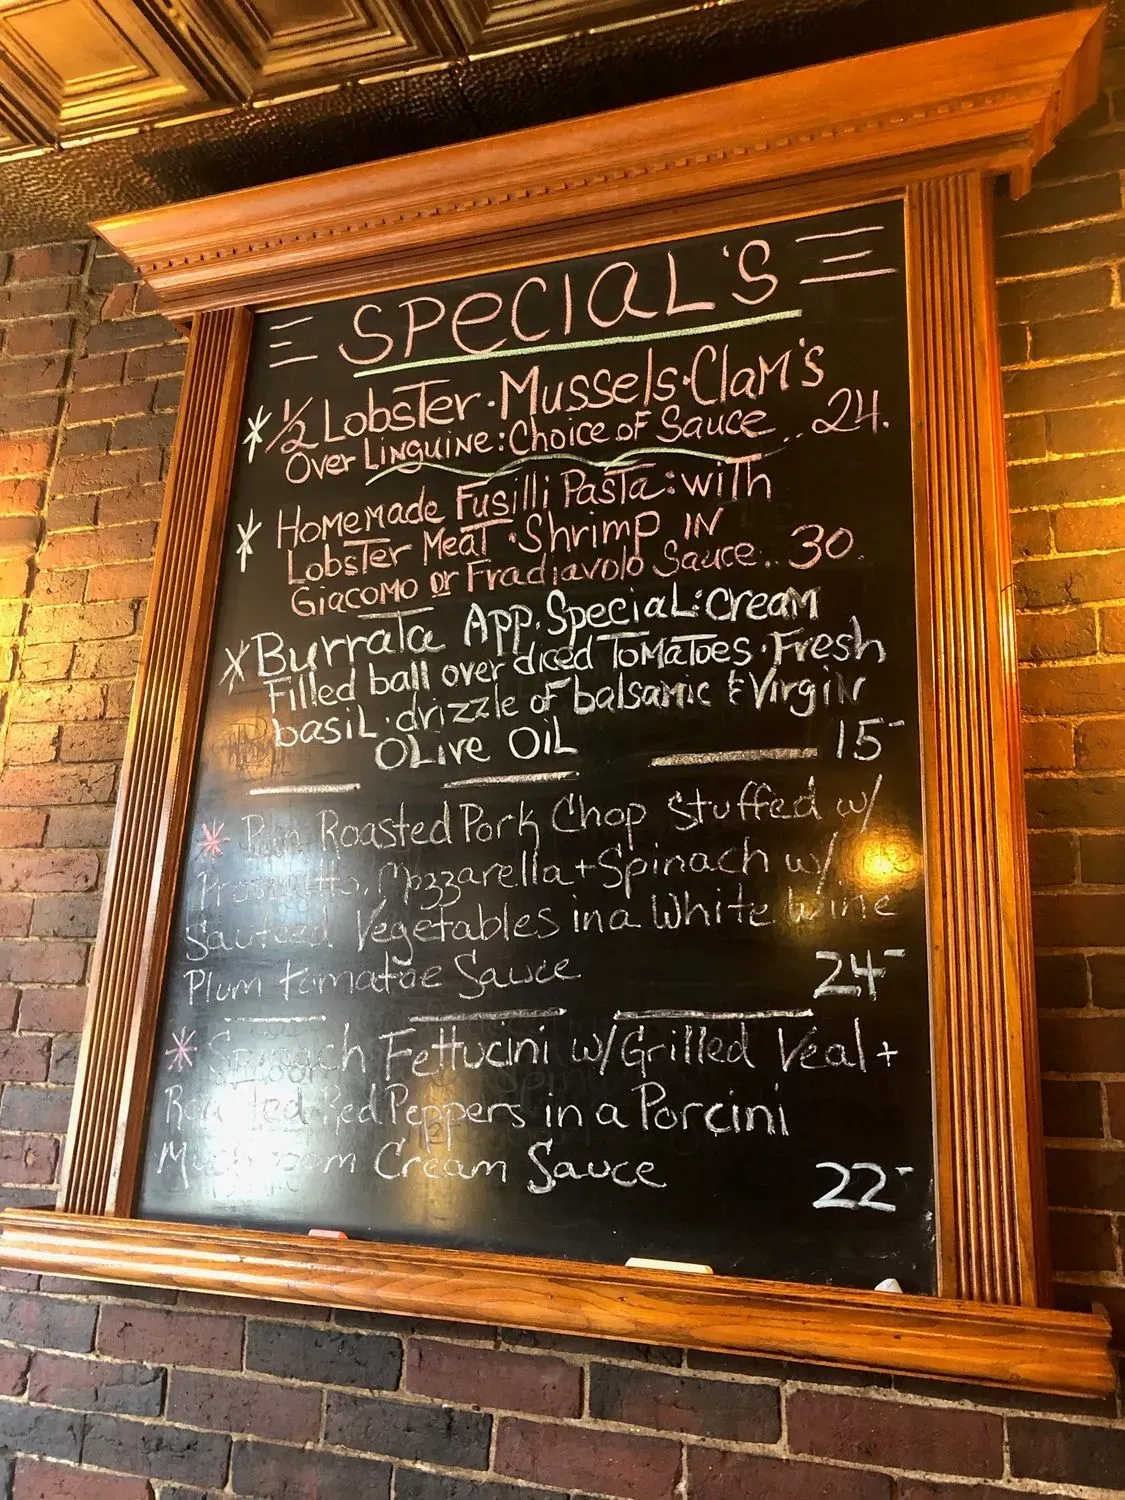 SPECIAL'S
½ Lobster · Mussels · Clam's
Over Linguine: Choice of Sauce .. 24.
Homemade Fusilli Pasta: with
Lobster Meat · Shrimp IN
Giacomo or Fradiavolo Sauce.. 30.
Burrata App. Special: cream
Filled ball over diced Tomatoes · Fresh
basil · drizzle of balsamic & Virgin
Olive Oil 15-
Pan Roasted Pork Chop Stuffed w/
Proscuitto, Mozzarella + Spinach w/
Sauteed Vegetables in a White Wine
Plum tomatoe Sauce 24-
Spinach Fettucini w/ Grilled Veal +
Roasted Red Peppers in a Porcini
Mushroom Cream Sauce 22-